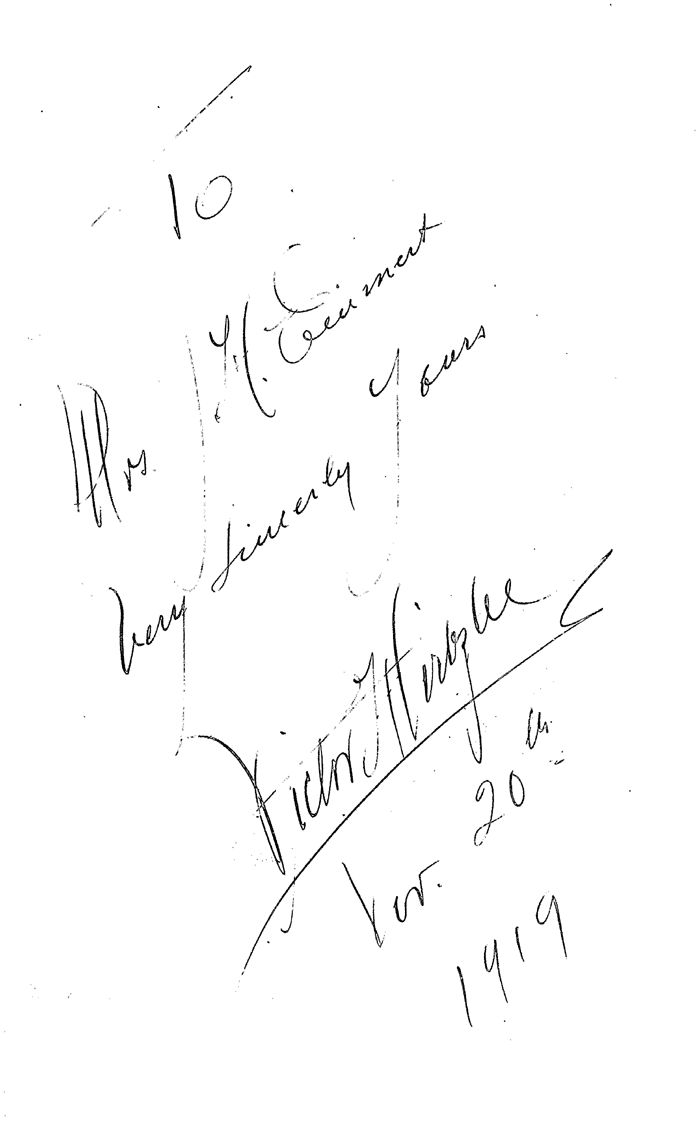 To
Mrs. J H.
Very Sincerely Yours
Victor Hirtzler
Nov. 20th
1919